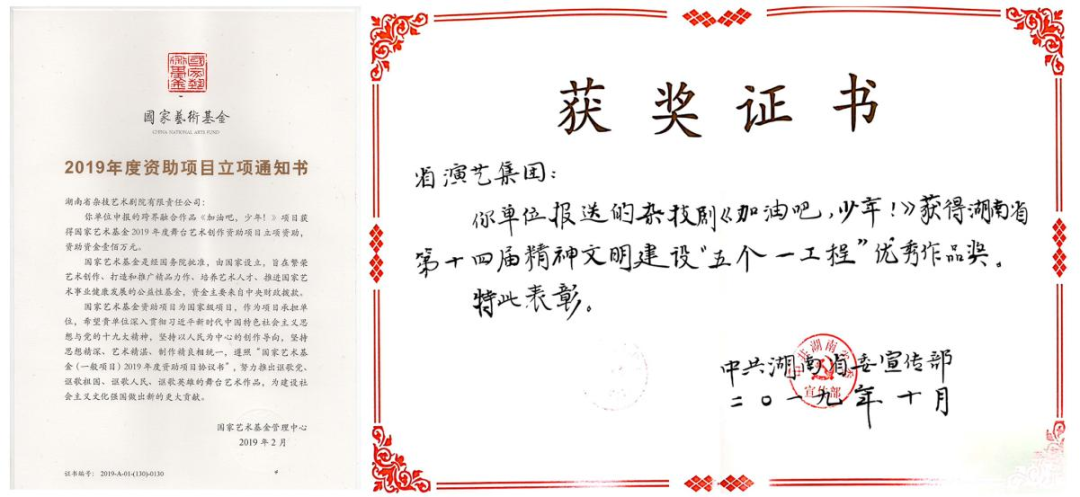 國家藝術基金
CHINA NATIONAL ARTS FUND
2019年度资助项目立项通知书
湖南省杂技艺术剧院有限责任公司：
你单位申报的跨界融合作品《加油吧，少年！》项目获
得国家艺术基金2019年度舞台艺术创作资助项目立项资助，
资助资金壹佰万元。
国家艺术基金是经国务院批准，由国家设立，旨在繁荣
艺术创作、打造和推广精品力作、培养艺术人才、推进国家艺
术事业健康发展的公益性基金，资金主要来自中央财政拨款。
国家艺术基金资助项目为国家级项目，作为项目承担单
位，希望贵单位深入贯彻习近平新时代中国特色社会主义思
想与党的十九大精神，坚持以人民为中心的创作导向，坚持
思想精深、艺术精湛、制作精良相统一，遵照“国家艺术基
金（一般项目）2019年度资助项目协议书”，努力推出讴歌党、
讴歌祖国、讴歌人民、讴歌英雄的舞台艺术作品，为建设社
会主义文化强国做出新的更大贡献。
国家艺术基金管理中心
2019年2月
证书编号： 2019-A-01-(130)-0130
获奖证书
省演艺集团：
你单位报送的杂技剧《加油吧，少年！》获得湖南省
第十四届精神文明建设“五个一工程”优秀作品奖。
特此表彰。
中共湖南省委宣传部
二〇一九年十月
宣传部